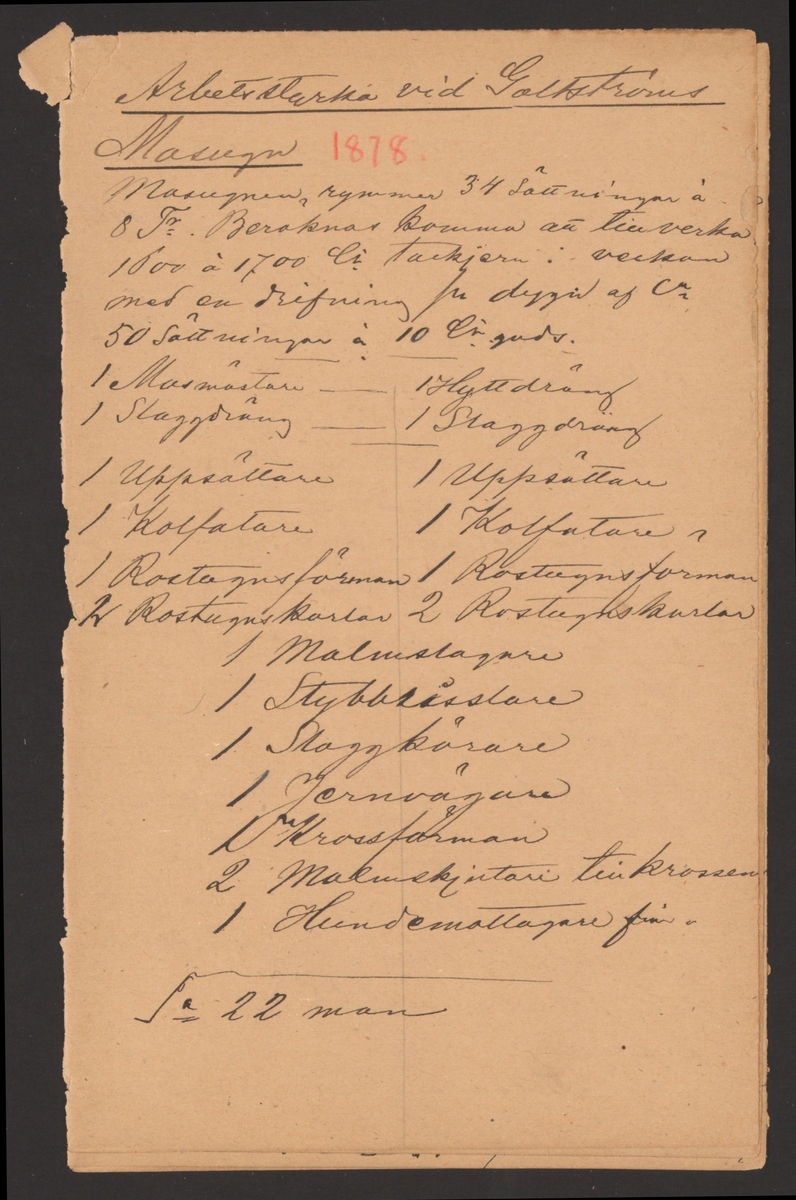 Arbetsstyrka vid Galtströms
Masugn 1878.
Masugnen rymmer 34 Sättningar à
8 Tr. Beräknas komma att tillverka
1600 à 1700 Ctr tackjern i veckan
med en drifning pr dygn af Ca
50 Sättningar à 10 Ctr gods.
1 Masmästare — 1 Hyttdräng
1 Slaggdräng — 1 Slaggdräng
1 Uppsättare 1 Uppsättare
1 Kolfatare 1 Kolfatare
1 Rostugnsförman 1 Rostugnsförman
2 Rostugnskarlar 2 Rostugnskarlar
1 Malmslagare
1 Stybb
1 Slaggkörare
1 Jernvägare
1 Krossförman
2 Malmskjutare till krossen
1 Hundemottagare
Sa 22 man